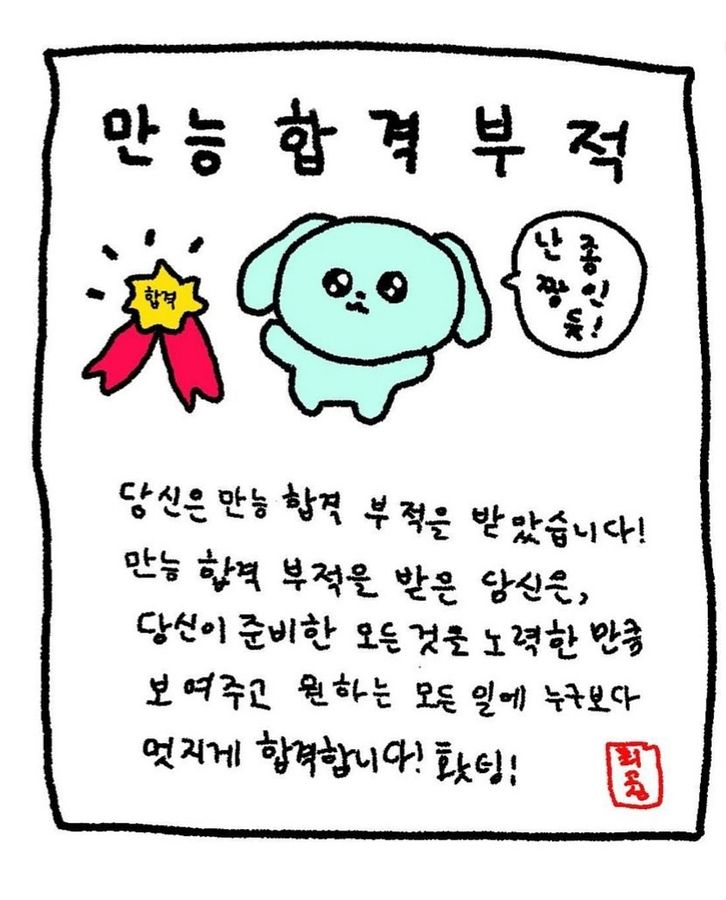 만능합격부적
합격
난 종
짱인
듯!
당신은 만능 합격 부적을 받았습니다!
만능 합격 부적을 받은 당신은,
당신이 준비한 모든 것을 노력한 만큼
보여주고 원하는 모든 일에 누구보다
멋지게 합격합니다! 홧팅!
최고심